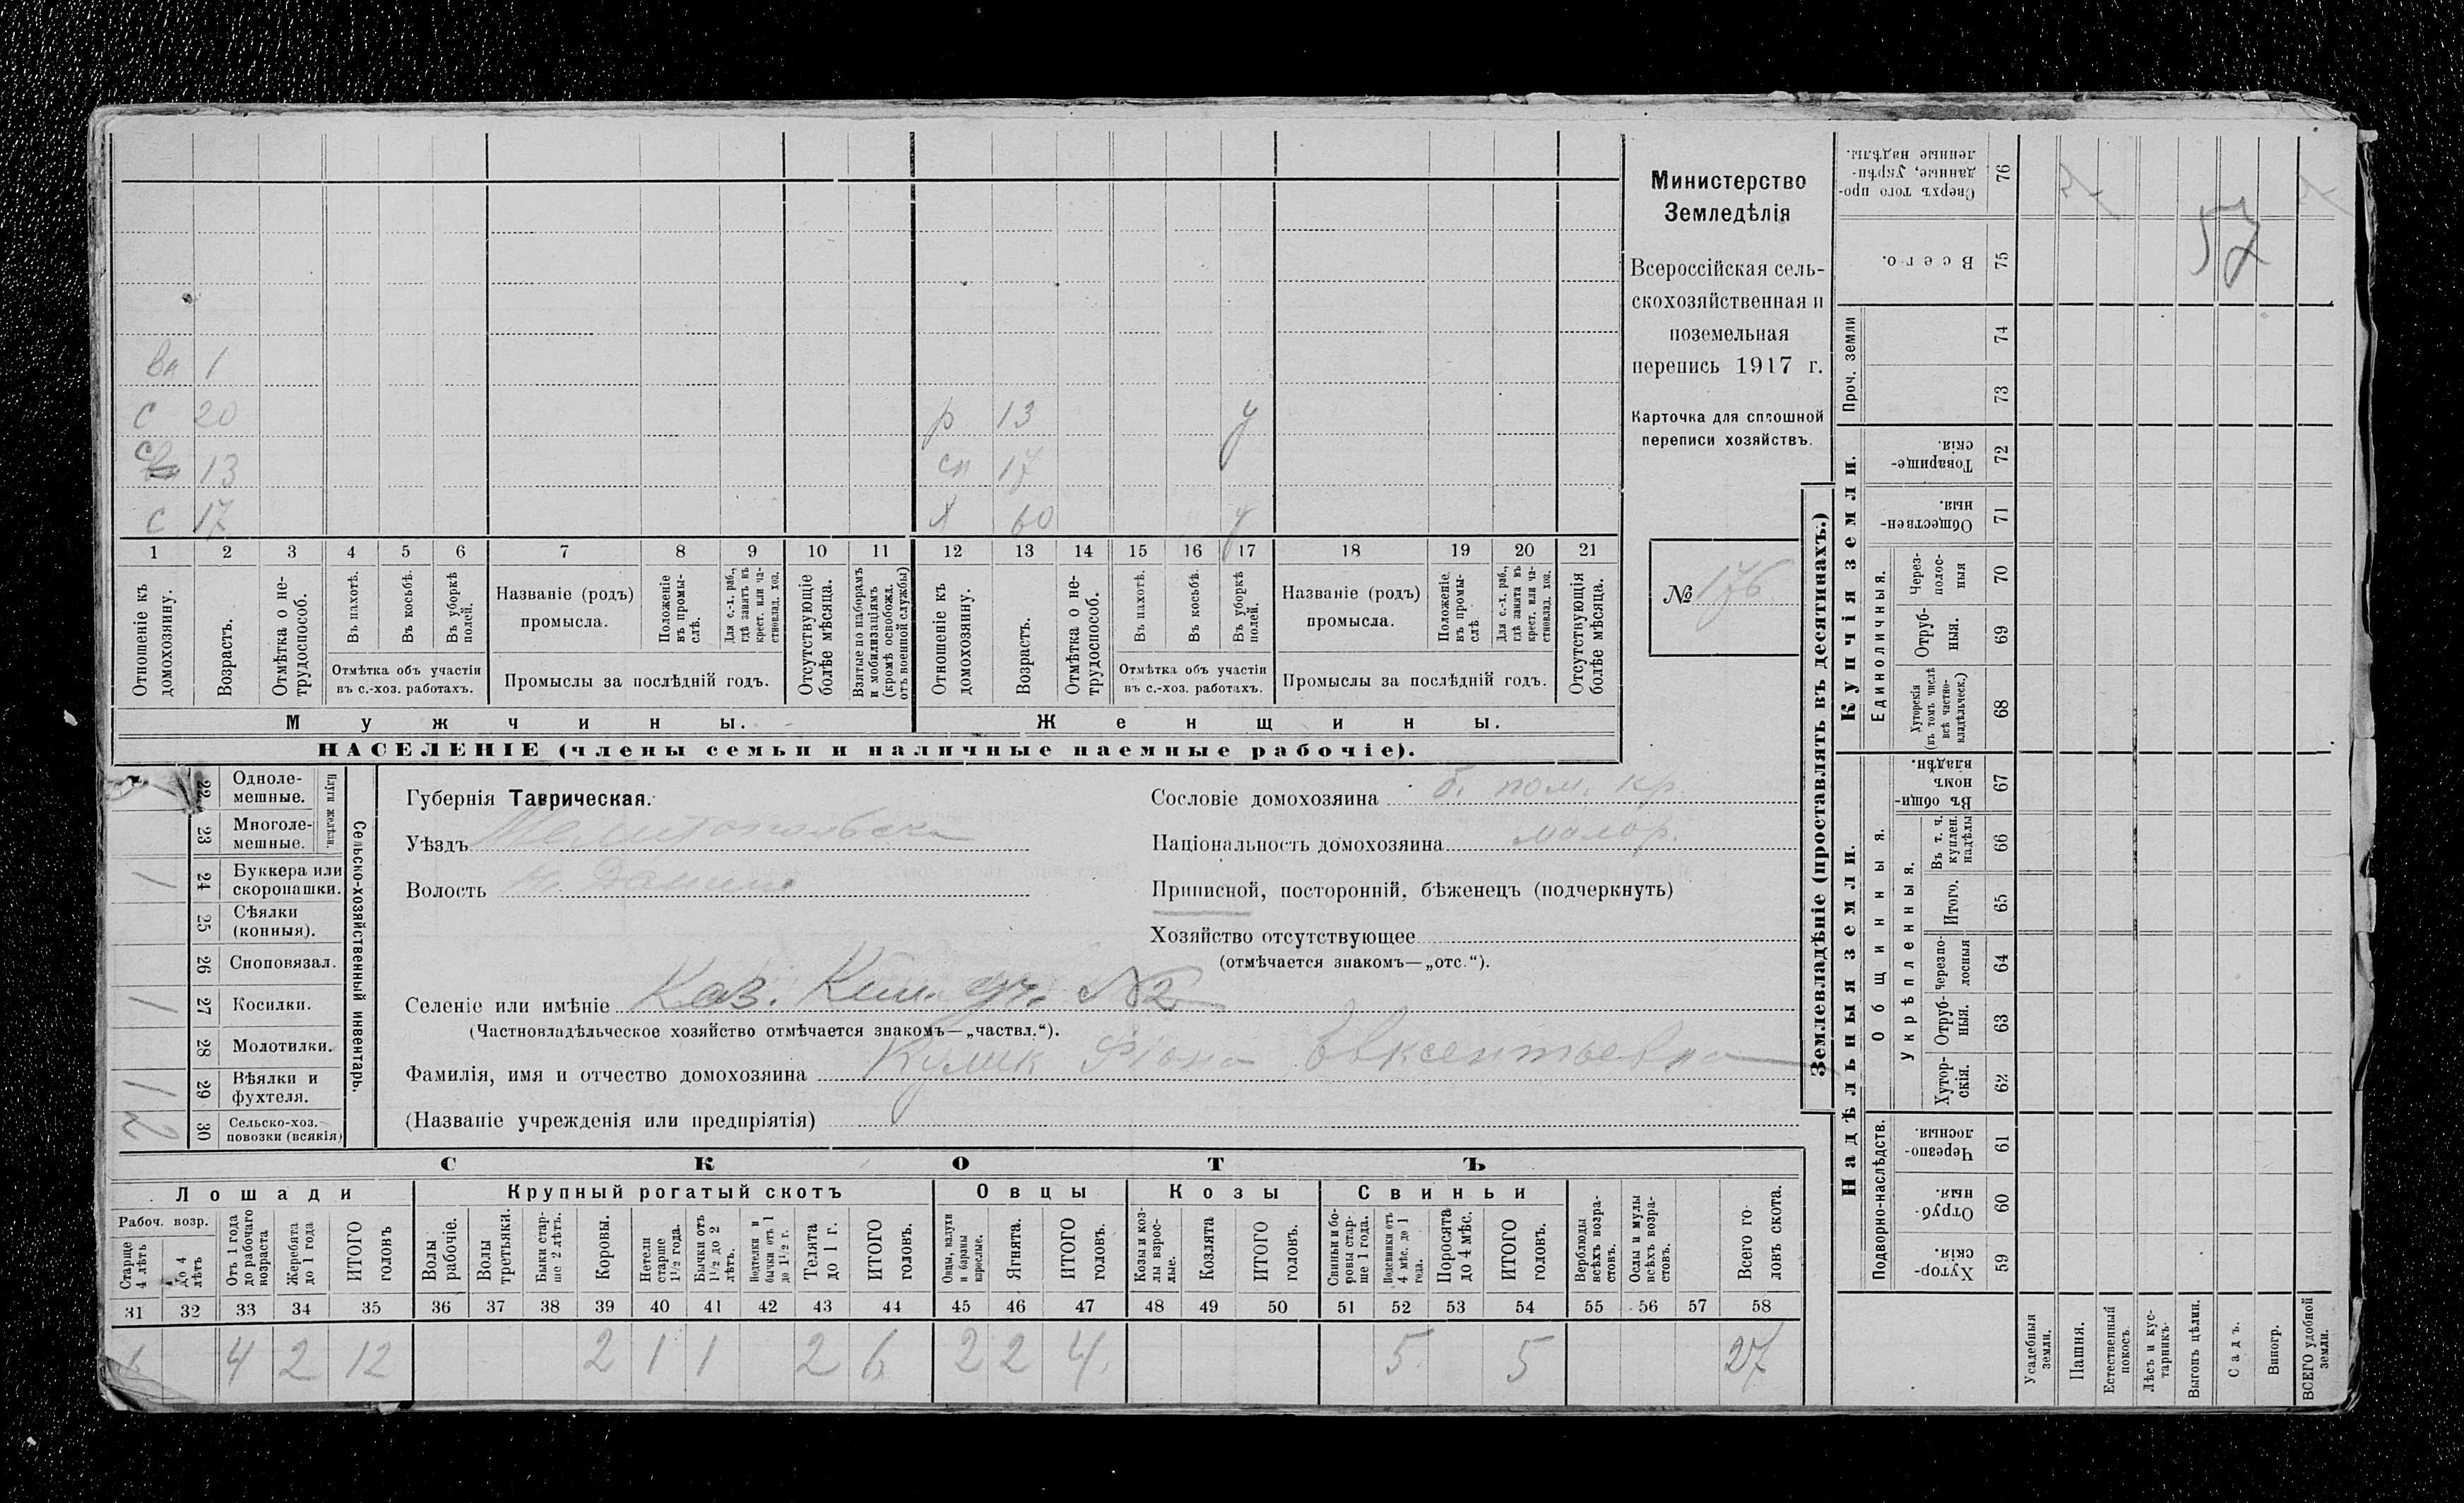 вн 1
с 20 р 13 у
с 13 сп 17
с 17 х 60 у
1 2 3 4 5 6 7 8 9 10 11 12 13 14 15 16 17 18 19 20 21
Отношеніе къ домохозяину.
Возрастъ.
Отмѣтка о нетрудоспособ.
Въ пахотѣ.
Въ косьбѣ.
Въ уборкѣ полей.
Отмѣтка объ участіи
въ с.-хоз. работахъ.
Названіе (родъ)
промысла.
Положеніе въ промыслѣ.
Для с.-х. раб., гдѣ занятъ въ крест. или частновлад. хоз.
Промыслы за послѣдній годъ.
Отсутствующіе болѣе мѣсяца.
Взятые по наборамъ и мобилизаціямъ (кромѣ освобожд. отъ военной службы)
Отношеніе къ домохозяину.
Возрастъ.
Отмѣтка о нетрудоспособ.
Въ пахотѣ.
Въ косьбѣ.
Въ уборкѣ полей.
Отмѣтка объ участіи
въ с.-хоз. работахъ.
Названіе (родъ)
промысла.
Положеніе въ промыслѣ.
Для с.-х. раб., гдѣ занята въ крест. или частновлад. хоз.
Промыслы за послѣдній годъ.
Отсутствующія болѣе мѣсяца.
Мужчины. Женщины.
НАСЕЛЕНІЕ (члены семьи и наличные наемные рабочіе).
Министерство
Земледѣлія
Всероссійская сель-
скохозяйственная и
поземельная
перепись 1917 г.
Карточка для сплошной
переписи хозяйствъ.
№ 176
Сельско-хозяйственный инвентарь.
Плуги желѣзн.
22 Одноле-
мешные.
23 Многоле-
мешные.
1 24 Буккера или
скоропашки.
25 Сѣялки
(конныя).
26 Сноповязал.
1 27 Косилки.
28 Молотилки.
1 29 Вѣялки и
фухтеля.
2 30 Сельско-хоз.
повозки (всякія)
Губернія Таврическая.
Уѣздъ Мелитопольск
Волость
Селеніе или имѣніе Каз. Ким. уч. №2
(Частновладѣльческое хозяйство отмѣчается знакомъ—„частвл.“).
Фамилія, имя и отчество домохозяина Кулик Фіона Евксентьевна
(Названіе учрежденія или предпріятія)
Сословіе домохозяина б. пом. кр.
Національность домохозяина малор.
Приписной, посторонній, бѣженецъ (подчеркнуть)
Хозяйство отсутствующее
(отмѣчается знакомъ—„отс.“).
СКОТЪ
Лошади Крупный рогатый скотъ Овцы Козы Свиньи
Рабоч. возр.
Старше 4 лѣтъ
до 4 лѣтъ
Отъ 1 года до рабочаго возраста
Жеребята до 1 года
ИТОГО головъ
Волы рабочіе.
Волы третьяки.
Быки старше 2 лѣтъ.
Коровы.
Нетели старше 1½ года.
Бычки отъ 1½ до 2 лѣтъ.
Подтелки и бычки отъ 1 до 1½ г.
Телята до 1 г.
ИТОГО головъ.
Овцы, валухи и бараны взрослые.
Ягнята.
ИТОГО головъ.
Козы и козлы взрослые.
Козлята
ИТОГО головъ.
Свиньи и боровы старше 1 года.
Подсвинки отъ 4 мѣс. до 1 года.
Поросята до 4 мѣс.
ИТОГО головъ.
Верблюды всѣхъ возрастовъ.
Ослы и мулы всѣхъ возрастовъ.
Всего головъ скота.
31 32 33 34 35 36 37 38 39 40 41 42 43 44 45 46 47 48 49 50 51 52 53 54 55 56 57 58
6 4 2 12 2 1 1 2 6 2 2 4 5 5 27
Землевладѣніе (проставлять въ десятинахъ.)
Купчія земли.
Надѣльныя земли.
Сверхъ того проданные, укрѣпленные надѣлы. 76
Всего. 75
Проч. земли 74
73
Товарищескія. 72
Общественныя. 71
Единоличныя.
Черезполосныя 70
Отрубныя. 69
Хуторскія (въ томъ числѣ всѣ частновладѣльческ.) 68
Общинныя.
Въ общинномъ владѣн. 67
Укрѣпленныя.
Въ т. ч. куплен. надѣлы 66
Итого. 65
Черезполосныя 64
Отрубныя. 63
Хуторскія. 62
Подворно-наслѣдств.
Черезполосныя. 61
Отрубныя. 60
Хуторскія. 59
Усадебныя земли.
Пашня.
Естественный покосъ.
Лѣсъ и кустарникъ.
Выгонъ цѣлин.
Садъ.
Виногр.
ВСЕГО удобной земли.
57